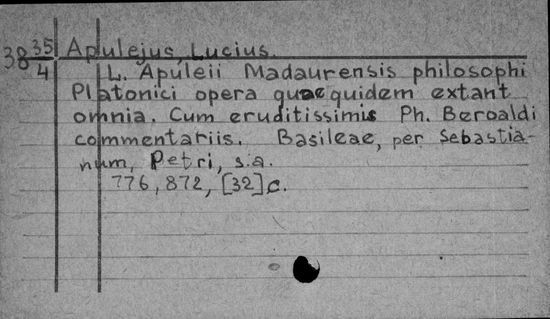 38 35/4 Apulejus, Lucius.
L. Apuleii Madaurensis philosophi
Platonici opera quae quidem extant
omnia. Cum eruditissimis Ph. Beroaldi
commentariis. Basileae, per Sebastia-
num, Petri, s.a.
776, 872, [32] c.